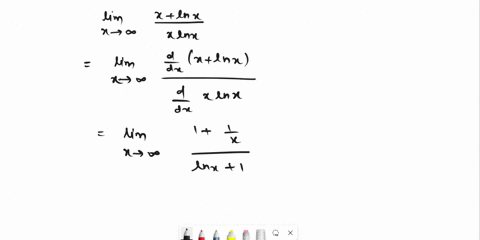 lim x→∞ (x + ln x) / (x ln x)
= lim x→∞ (d/dx (x + ln x)) / (d/dx x ln x)
= lim x→∞ (1 + 1/x) / (ln x + 1)